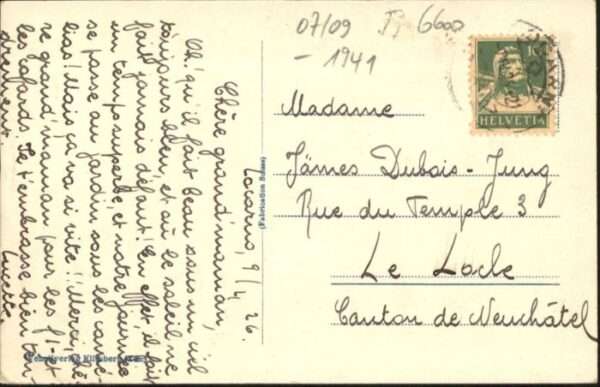 07/09 6600
- 1941
HELVETIA
Locarno, 9/4 26.
Chère grand'maman,
Oh! qu'il fait beau sous un ciel
toujours bleu, et où le soleil ne
fait jamais défaut! En effet, il fait
un temps superbe, et notre journée
se passe au jardin sous les camé-
lias! Mais ça va si vite!! Merci, chè-
re grand'maman pour les fl- et
les cafards. Je t'embrasse bien ten-
drement.
Lucette.
(Fabrication Suisse)
Madame
Jämes Dubois-Jung
Rue du Temple 3
Le Locle
Canton de Neuchâtel